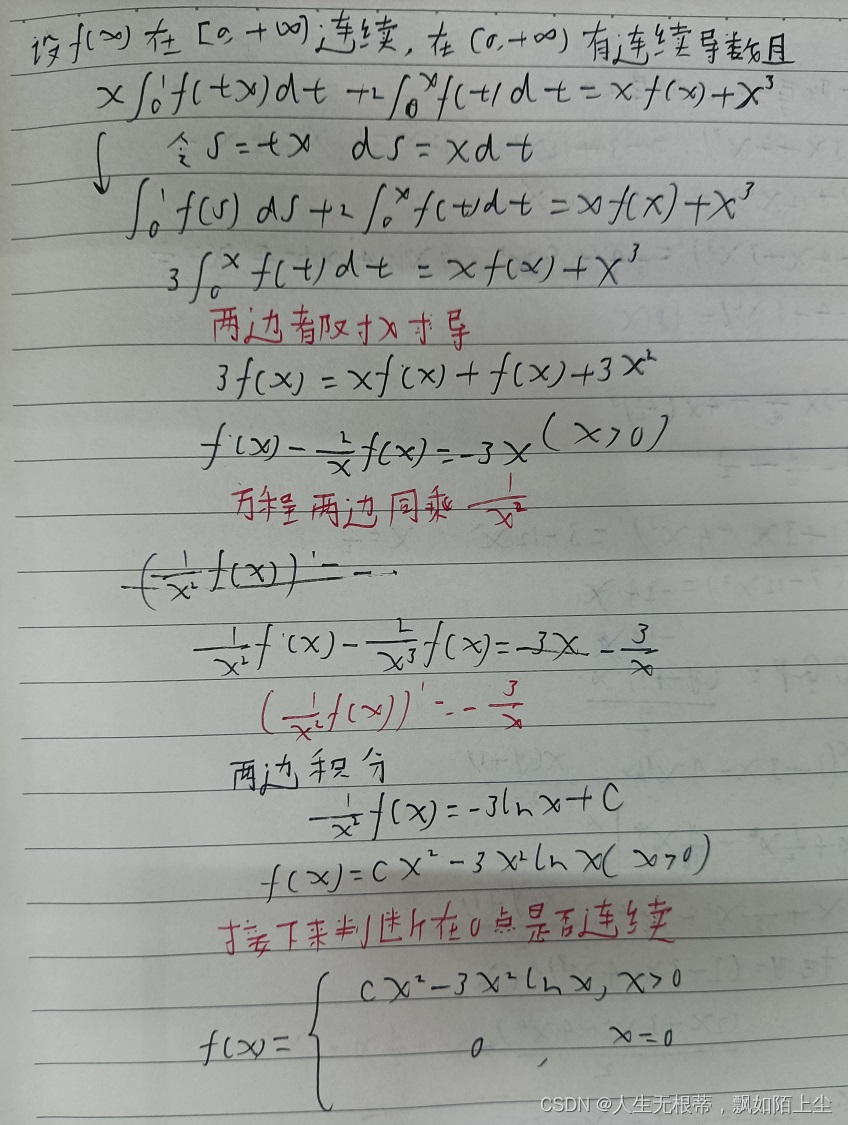 设f(x)在[0,+∞)连续,在(0,+∞)有连续导数且
x∫₀¹f(tx)dt+2∫₀ˣf(t)dt=xf(x)+x³
↓ 令s=tx ds=xdt
∫₀¹f(s)ds+2∫₀ˣf(t)dt=xf(x)+x³
3∫₀ˣf(t)dt=xf(x)+x³
两边都对x求导
3f(x)=xf'(x)+f(x)+3x²
f'(x)-2/x f(x)=-3x(x>0)
方程两边同乘1/x²
(1/x² f(x))'=...
1/x² f'(x)-2/x³ f(x)=-3x -3/x
(1/x² f(x))'=-3/x
两边积分
1/x² f(x)=-3lnx+C
f(x)=Cx²-3x²lnx(x>0)
接下来判断在0点是否连续
f(x)={ Cx²-3x²lnx, x>0
0, x=0
CSDN @人生无根蒂，飘如陌上尘